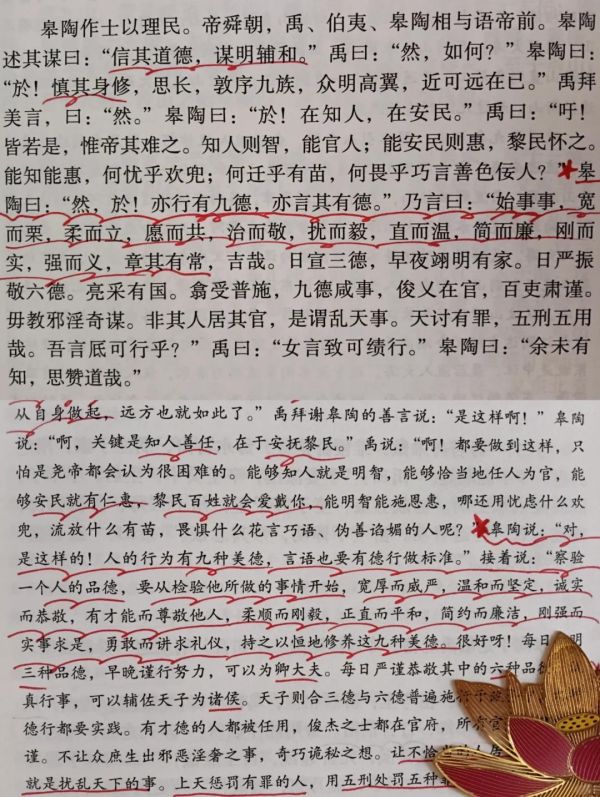 皋陶作士以理民。帝舜朝，禹、伯夷、皋陶相与语帝前。皋陶
述其谋曰：“信其道德，谋明辅和。”禹曰：“然，如何？”皋陶曰：
“於！慎其身修，思长，敦序九族，众明高翼，近可远在已。”禹拜
美言，曰：“然。”皋陶曰：“於！在知人，在安民。”禹曰：“吁！
皆若是，惟帝其难之。知人则智，能官人；能安民则惠，黎民怀之。
能知能惠，何忧乎欢兜；何迁乎有苗，何畏乎巧言善色佞人？”皋
陶曰：“然，於！亦行有九德，亦言其有德。”乃言曰：“始事事，宽
而栗，柔而立，愿而共，治而敬，扰而毅，直而温，简而廉，刚而
实，强而义，章其有常，吉哉。日宣三德，早夜翊明有家。日严振
敬六德。亮采有国。翕受普施，九德咸事，俊乂在官，百吏肃谨。
毋教邪淫奇谋。非其人居其官，是谓乱天事。天讨有罪，五刑五用
哉。吾言厎可行乎？”禹曰：“女言致可绩行。”皋陶曰：“余未有
知，思赞道哉。”
从自身做起，远方也就如此了。”禹拜谢皋陶的善言说：“是这样啊！”皋陶
说：“啊，关键是知人善任，在于安抚黎民。”禹说：“啊！都要做到这样，只
怕是尧帝都会认为很困难的。能够知人就是明智，能够恰当地任人为官，能
够安民就有仁惠，黎民百姓就会爱戴你，能明智能施恩惠，哪还用忧虑什么欢
兜，流放什么有苗，畏惧什么花言巧语、伪善谄媚的人呢？”皋陶说：“对，
是这样的！人的行为有九种美德，言语也要有德行做标准。”接着说：“察验
一个人的品德，要从检验他所做的事情开始，宽厚而威严，温和而坚定，诚实
而恭敬，有才能而尊敬他人，柔顺而刚毅，正直而平和，简约而廉洁，刚强而
实事求是，勇敢而讲求礼仪，持之以恒地修养这九种美德。很好呀！每日
三种品德，早晚谨行努力，可以为卿大夫。每日严谨恭敬其中的六种品
真行事，可以辅佐天子为诸侯。天子则合三德与六德普遍施行于
德行都要实践。有才德的人都被任用，俊杰之士都在官府，所有
谨。不让众庶生出邪恶淫奢之事，奇巧诡秘之想。让不恰
就是扰乱天下的事。上天惩罚有罪的人，用五刑处罚五种